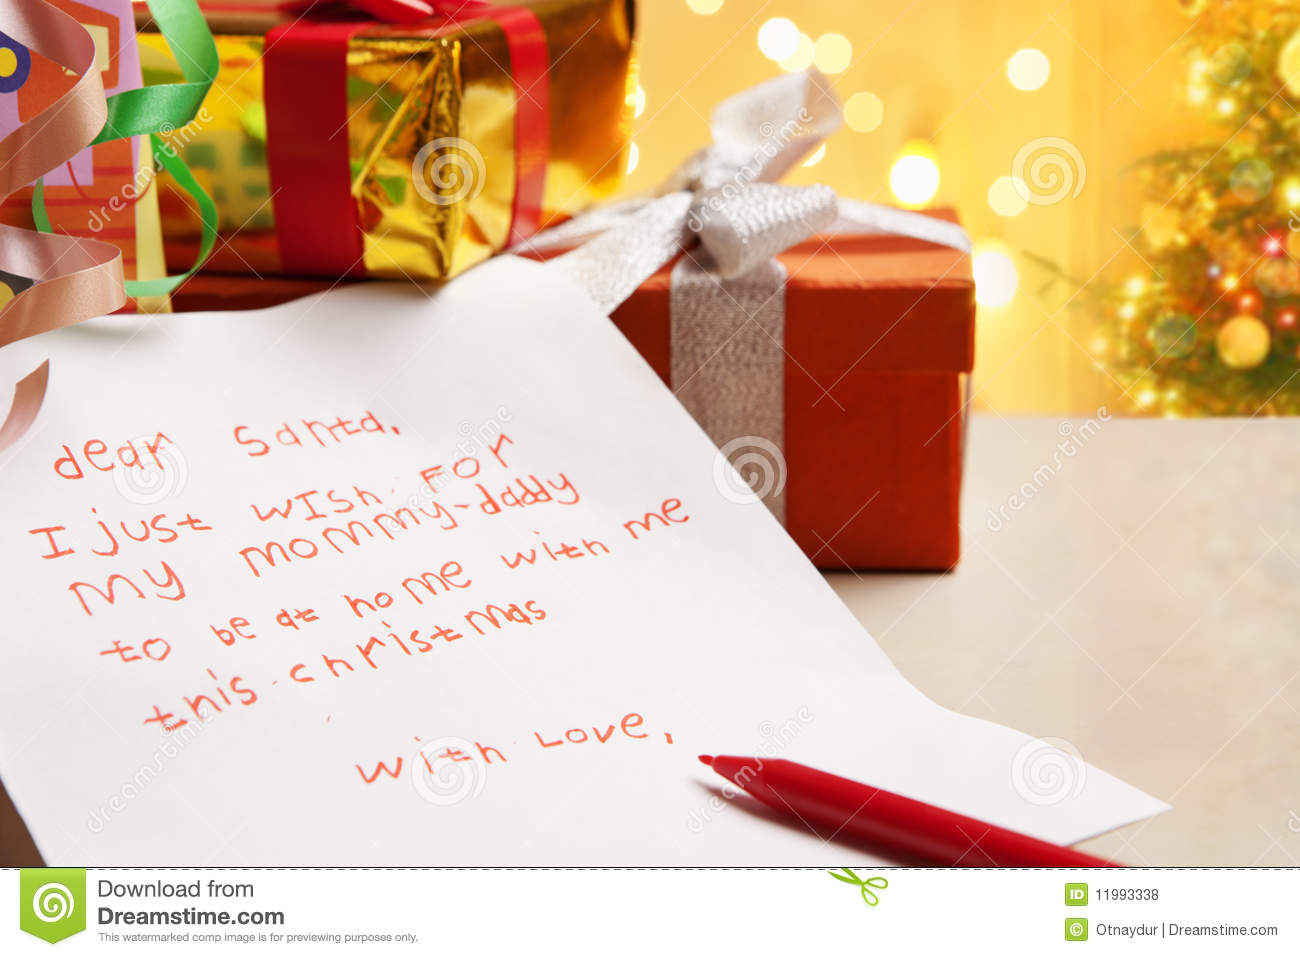 dear Santa,
I just wish for
my mommy-daddy
to be at home with me
this christmas
with Love,
Download from
Dreamstime.com
This watermarked comp image is for previewing purposes only.
ID 11993338
© Otnaydur | Dreamstime.com